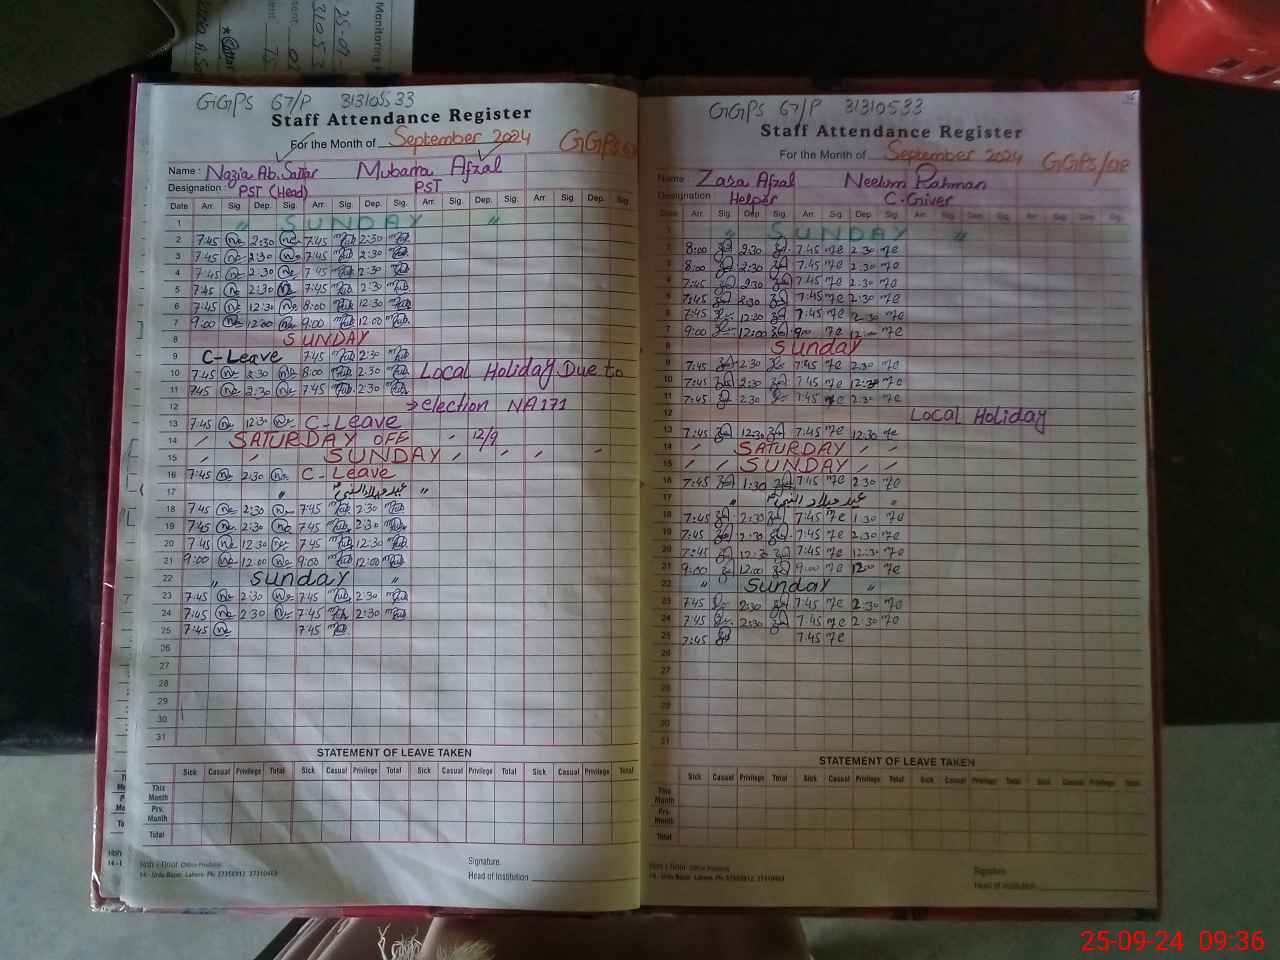 GGPS 67/P 31310533
Staff Attendance Register
For the Month of September 2024
Name: Nazia Ab. Sattar Mubarra Afzal
Designation PST (Head) PST
Date Arr. Sig. Dep. Sig. Arr. Sig. Dep. Sig. Arr. Sig. Dep. Sig. Arr. Sig. Dep. Sig.
1 " SUNDAY "
2 7:45 2:30 7:45 2:30
3 7:45 2:30 7:45 2:30
4 7:45 2:30 7:45 2:30
5 7:45 2:30 7:45 2:30
6 7:45 12:30 8:00 12:30
7 9:00 12:00 9:00 12:00
8 SUNDAY
9 C-Leave 7:45 2:30
10 7:45 2:30 8:00 2:30 Local Holiday Due to
11 7:45 2:30 7:45 2:30
12 → election NA171
13 7:45 12:30 C-Leave
14 SATURDAY OFF 12/9
15 SUNDAY
16 7:45 2:30 C-Leave
17 " عید میلاد النبی "
18 7:45 2:30 7:45 2:30
19 7:45 2:30 7:45 2:30
20 7:45 12:30 7:45 12:30
21 9:00 12:00 9:00 12:00
22 " Sunday "
23 7:45 2:30 7:45 2:30
24 7:45 2:30 7:45 2:30
25 7:45 7:45
26
27
28
29
30
31
STATEMENT OF LEAVE TAKEN
Sick Casual Privilege Total Sick Casual Privilege Total Sick Casual Privilege Total Sick Casual Privilege Total
This Month
Prv. Month
Total
Signature.
14 - Urdu Bazar, Lahore. Ph: 37358912, 37310463
Head of Institution
GGPS 67/P 31310533
Staff Attendance Register
For the Month of September 2024
Name: Zasa Afzal Neelum Rahman
Designation Helper C. Giver
Date Arr. Sig. Dep. Sig. Arr. Sig. Dep. Sig. Arr. Sig. Dep. Sig. Arr. Sig. Dep. Sig.
1 " SUNDAY "
2 8:00 2:30 7:45 2:30
3 8:00 2:30 7:45 2:30
4 7:45 2:30 7:45 2:30
5 7:45 2:30 7:45 2:30
6 7:45 12:30 7:45 2:30
7 9:00 12:00 9:00 12:00
8 Sunday
9 7:45 2:30 7:45 2:30
10 7:45 2:30 7:45 12:30
11 7:45 2:30 7:45 2:30
12 Local Holiday
13 7:45 12:30 7:45 12:30
14 SATURDAY
15 SUNDAY
16 7:45 1:30 7:45 2:30
17 " عید میلاد النبی "
18 7:45 2:30 7:45 1:30
19 7:45 2:30 7:45 2:30
20 7:45 12:30 7:45 12:30
21 9:00 12:00 9:00 12:00
22 " Sunday "
23 7:45 2:30 7:45 2:30
24 7:45 2:30 7:45 2:30
25 7:45 7:45
26
27
28
29
30
31
STATEMENT OF LEAVE TAKEN
Sick Casual Privilege Total Sick Casual Privilege Total Sick Casual Privilege Total Sick Casual Privilege Total
This Month
Prv. Month
Total
Signature
14 - Urdu Bazar, Lahore. Ph: 37358912, 37310463
Head of Institution
25-09-24 09:36